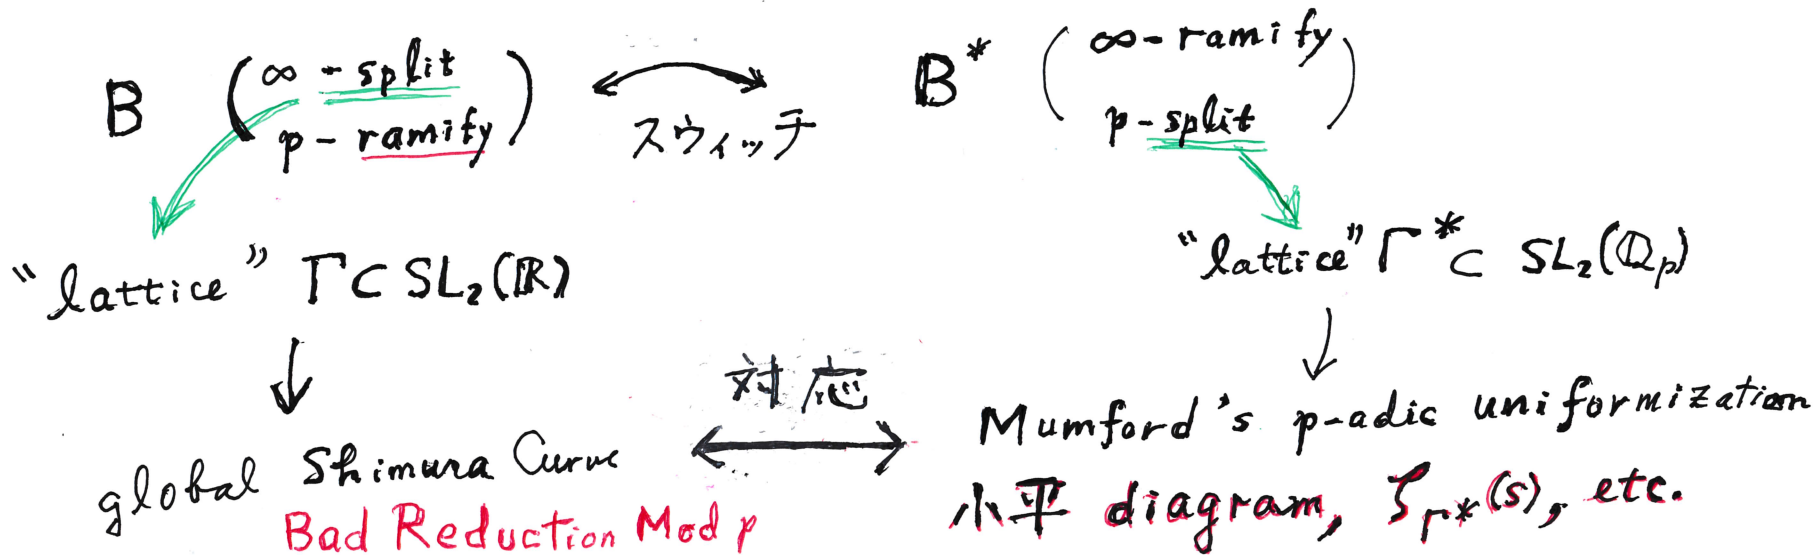 B ( ∞ - split
p - ramify )
スウィッチ
B* ( ∞ - ramify
p - split )
"lattice" Γ ⊂ SL₂(ℝ)
"lattice" Γ* ⊂ SL₂(ℚp)
対応
global Shimura Curve
Bad Reduction Mod p
Mumford's p-adic uniformization
小平 diagram, ζΓ*(s), etc.